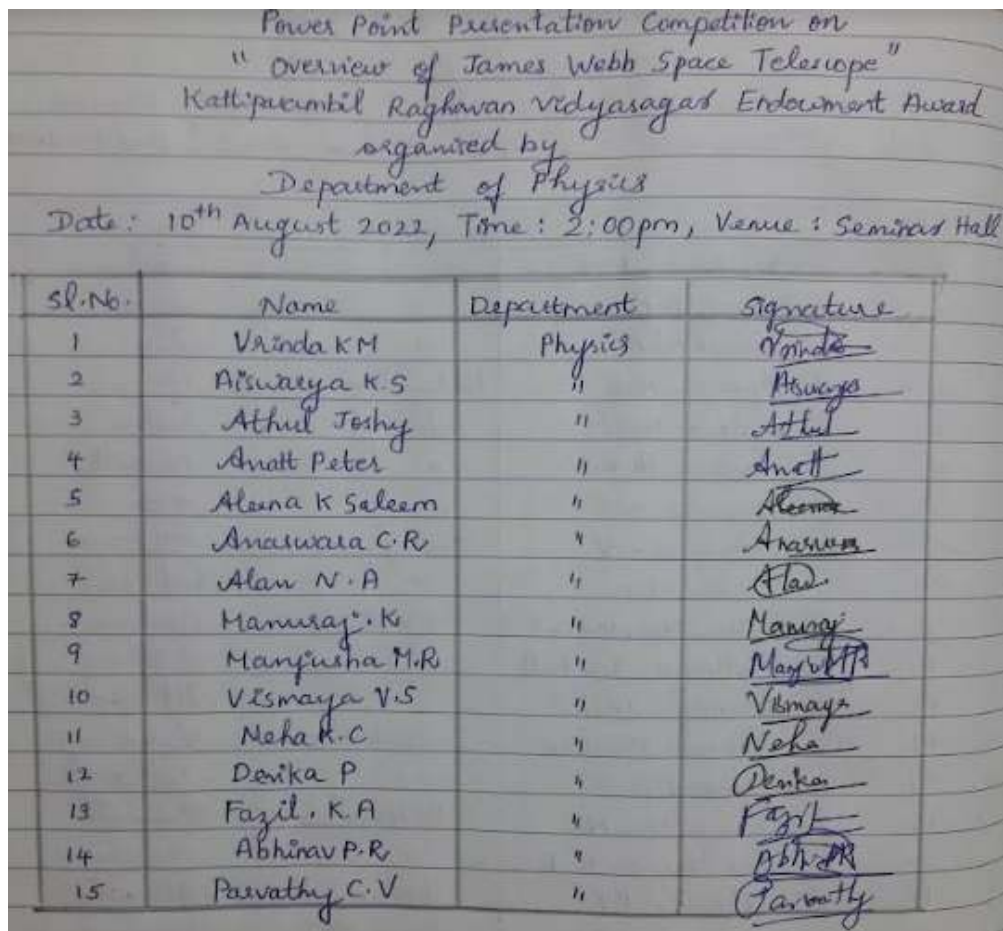 Power Point Presentation Competition on
" Overview of James Webb Space Telescope"
Kattiparambil Raghavan Vidyasagar Endowment Award
organised by
Department of Physics
Date: 10th August 2022, Time: 2:00pm, Venue: Seminar Hall
Sl.No. Name Department Signature
1 Vrinda KM Physics Vrinda
2 Aiswarya K.S " Aiswarya
3 Athul Joshy " Athul
4 Anatt Peter " Anett
5 Aleena K Saleem " Aleena
6 Anaswara C.R " Anaswara
7 Alan N.A " Alan
8 Manuraj.K " Manuraj
9 Manjusha M.R "
10 Vismaya V.S " Vismaya
11 Neha K.C " Neha
12 Devika P " Devika
13 Fazil.K.A " Fazil
14 Abhinav P.R "
15 Parvathy C.V " Parvathy